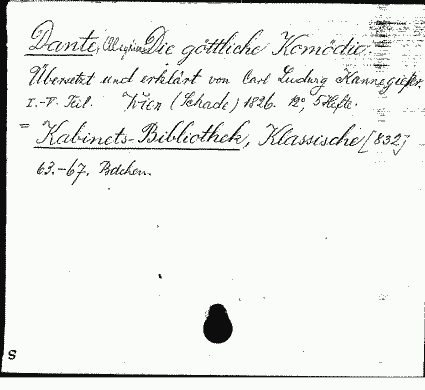 Dante, Alighieri Die göttliche Komödie.
Übersetzt und erklärt von Carl Ludwig Kannegießer.
I.-V. Teil. Wien (Schade) 1826. 12°, 5 Hefte.
= Kabinets-Bibliothek, Klassische [832]
63.-67. Bdchen.
S